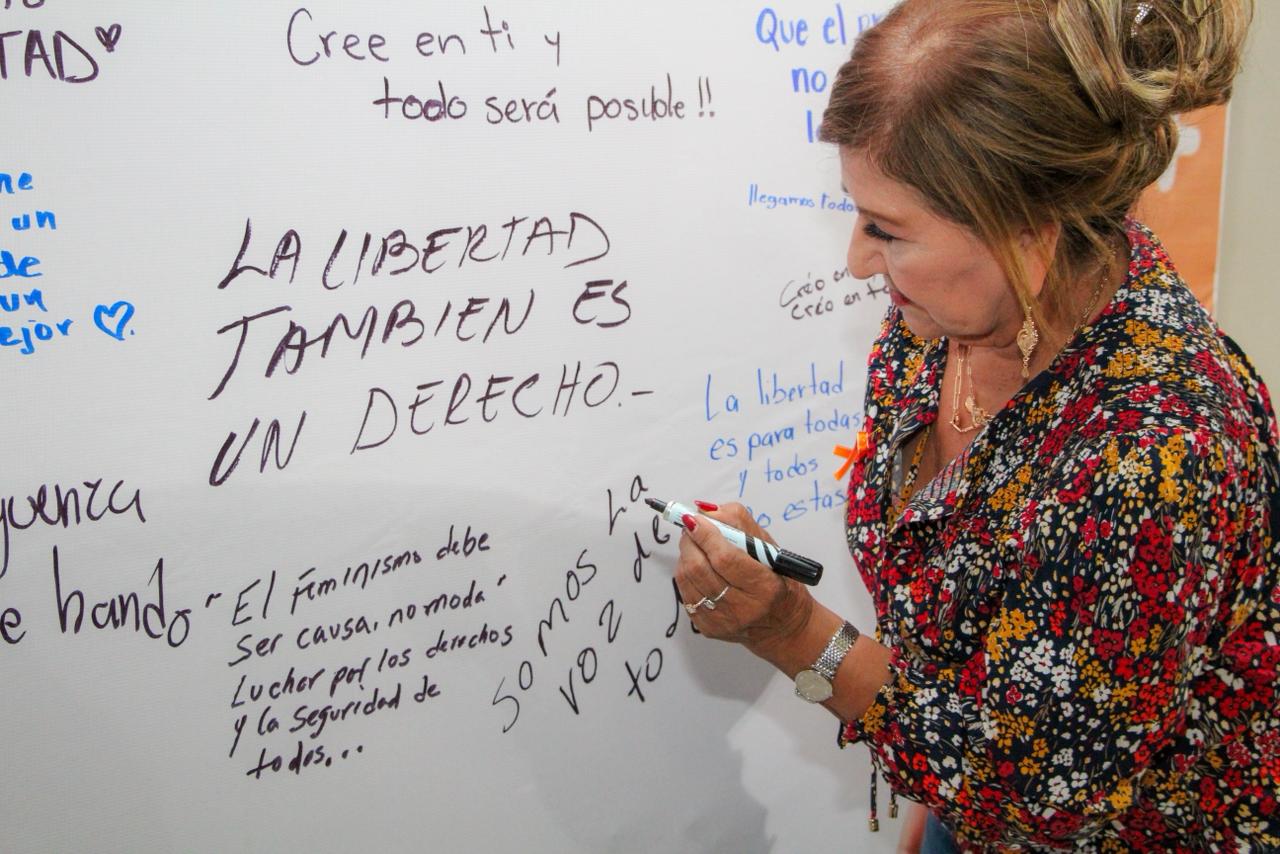 TAD
Cree en ti y
todo será posible!!
Que el
no
llegamos todo
Creo en
Creo en
un
de
un
ejor
LA LIBERTAD
TAMBIEN ES
UN DERECHO.-
La libertad
es para todas
y todos
estas
e bando
"El feminismo debe
ser causa, no moda"
Luchar por los derechos
y la seguridad de
todos...
Somos La
voz de
to d